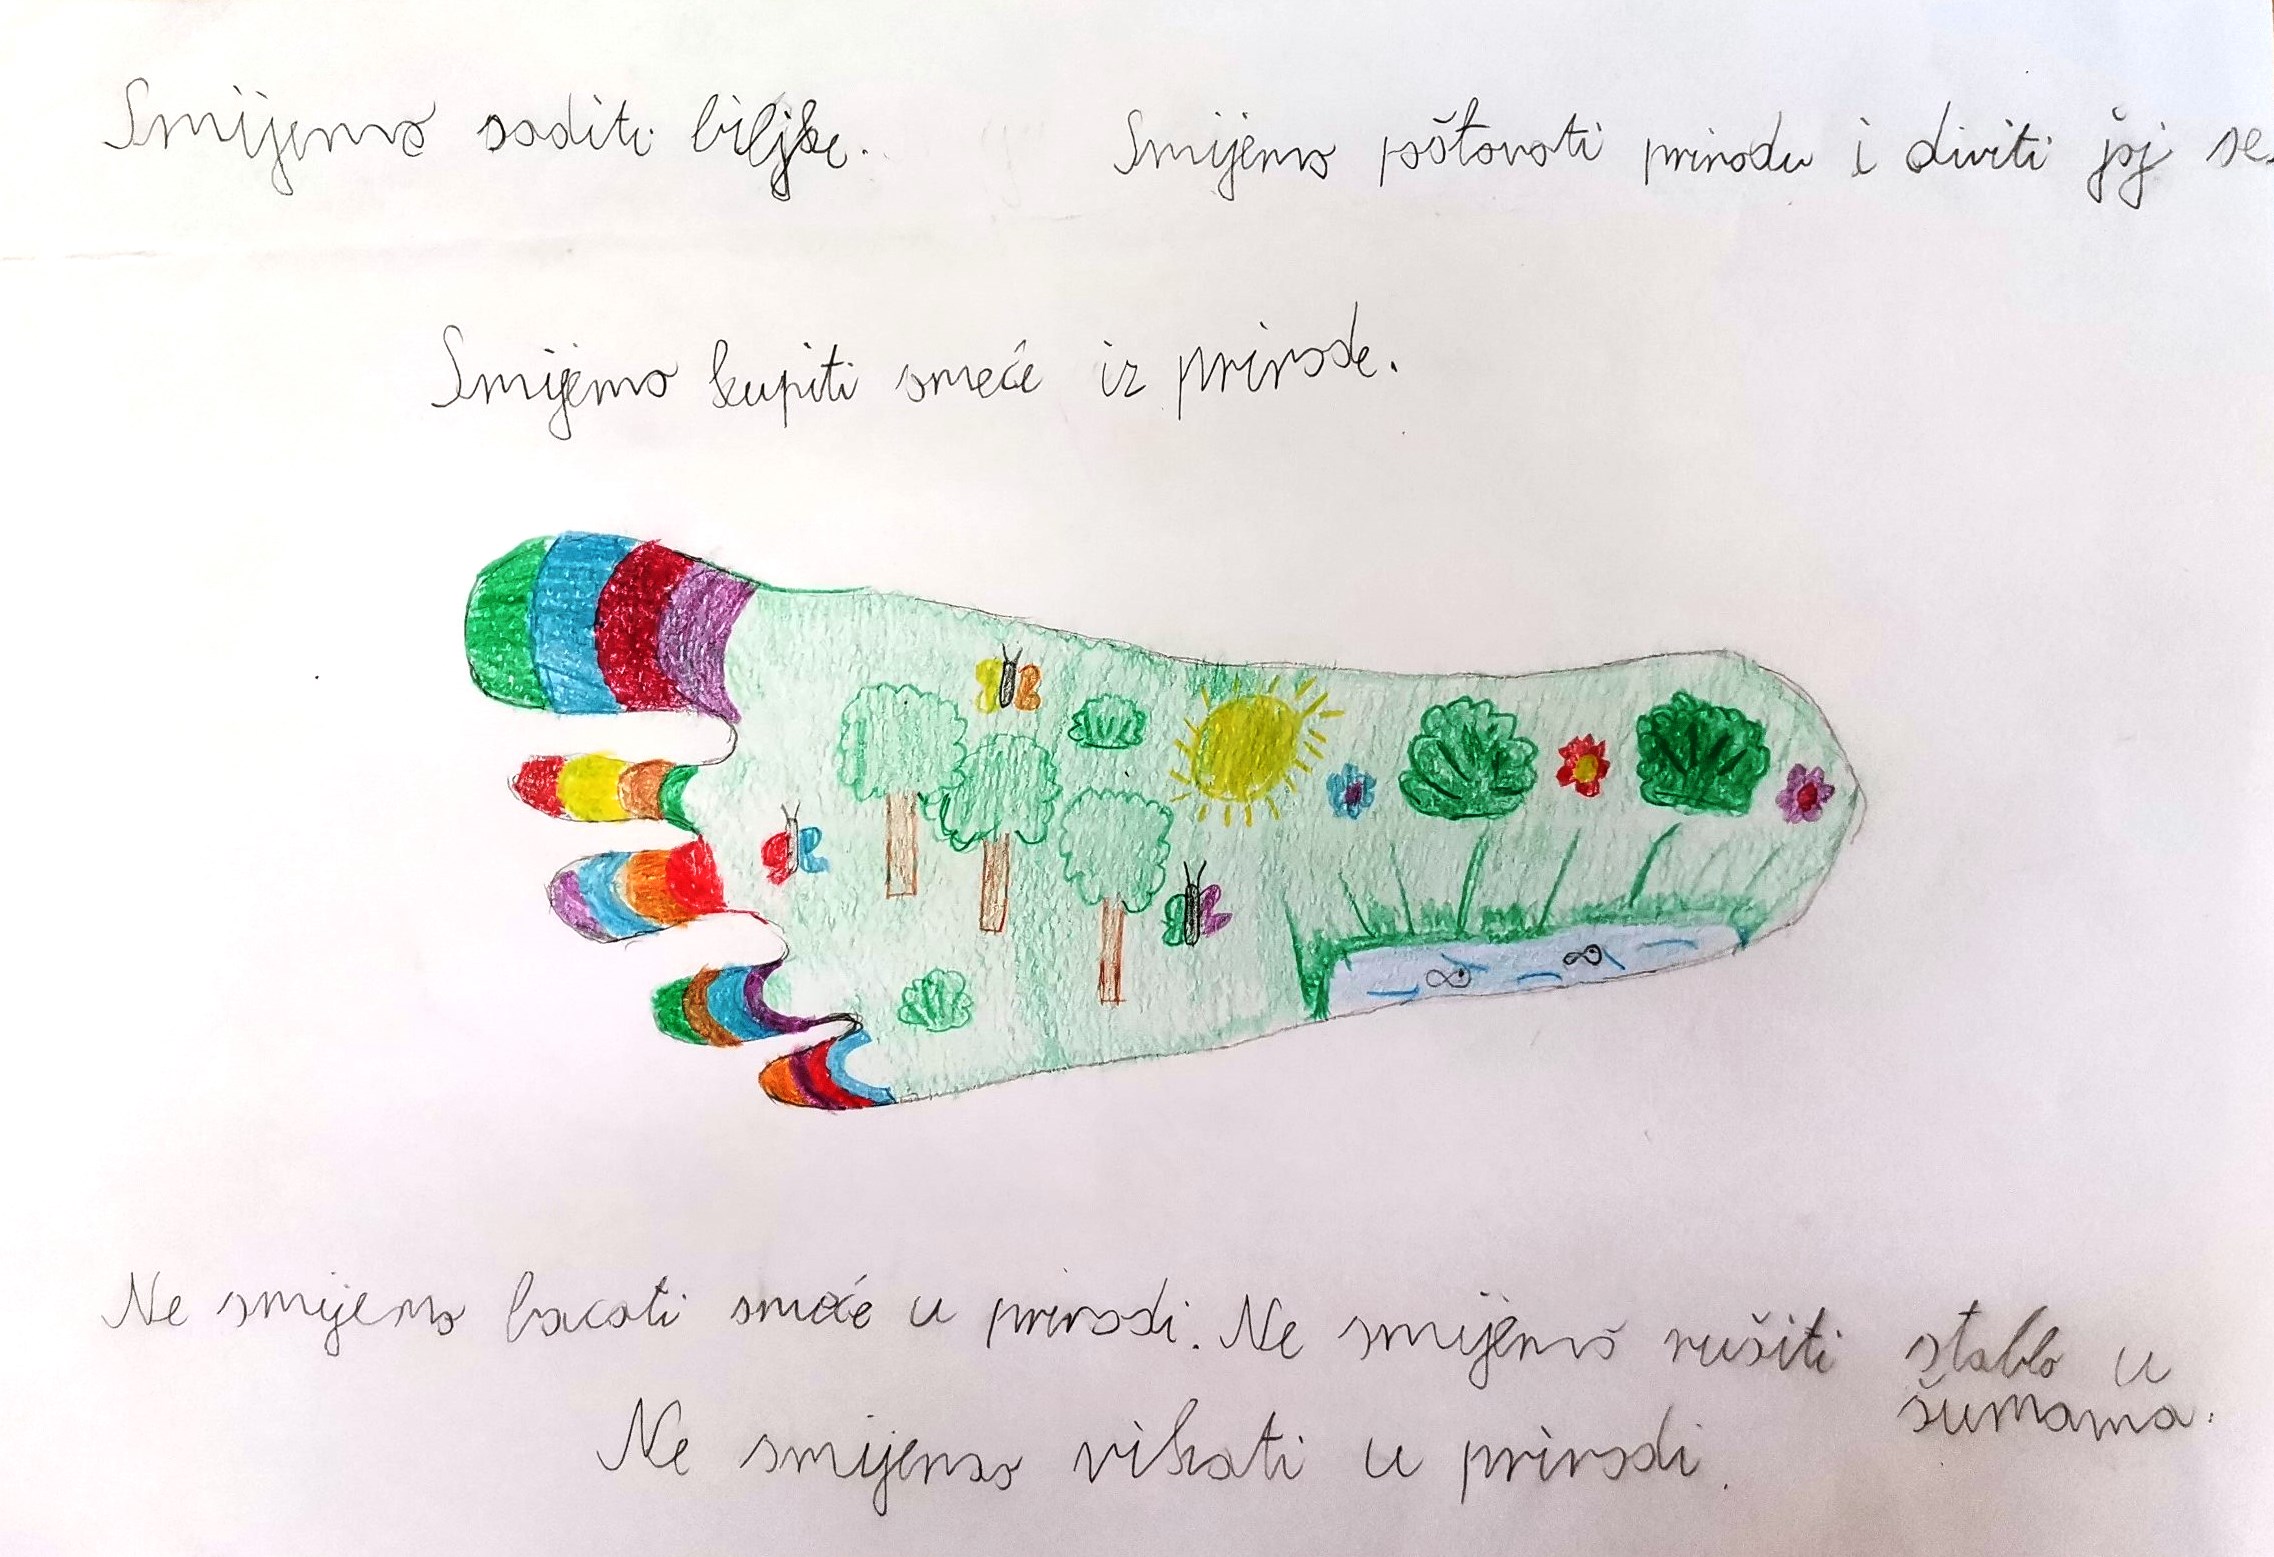 Smijemo saditi biljke.
Smijemo poštovati prirodu i diviti joj se.
Smijemo kupiti smeće iz prirode.
Ne smijemo bacati smeće u prirodi. Ne smijemo rušiti stabla u
šumama.
Ne smijemo vikati u prirodi.